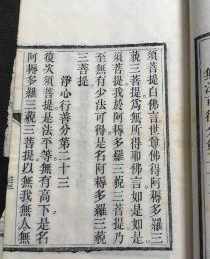 須菩提白佛言世尊佛得阿耨多羅三
藐三菩提爲無所得耶佛言如是如是
須菩提我於阿耨多羅三藐三菩提乃
至無有少法可得是名阿耨多羅三藐
三菩提
淨心行善分第二十三
復次須菩提是法平等無有高下是名
阿耨多羅三藐三菩提以無我無人無